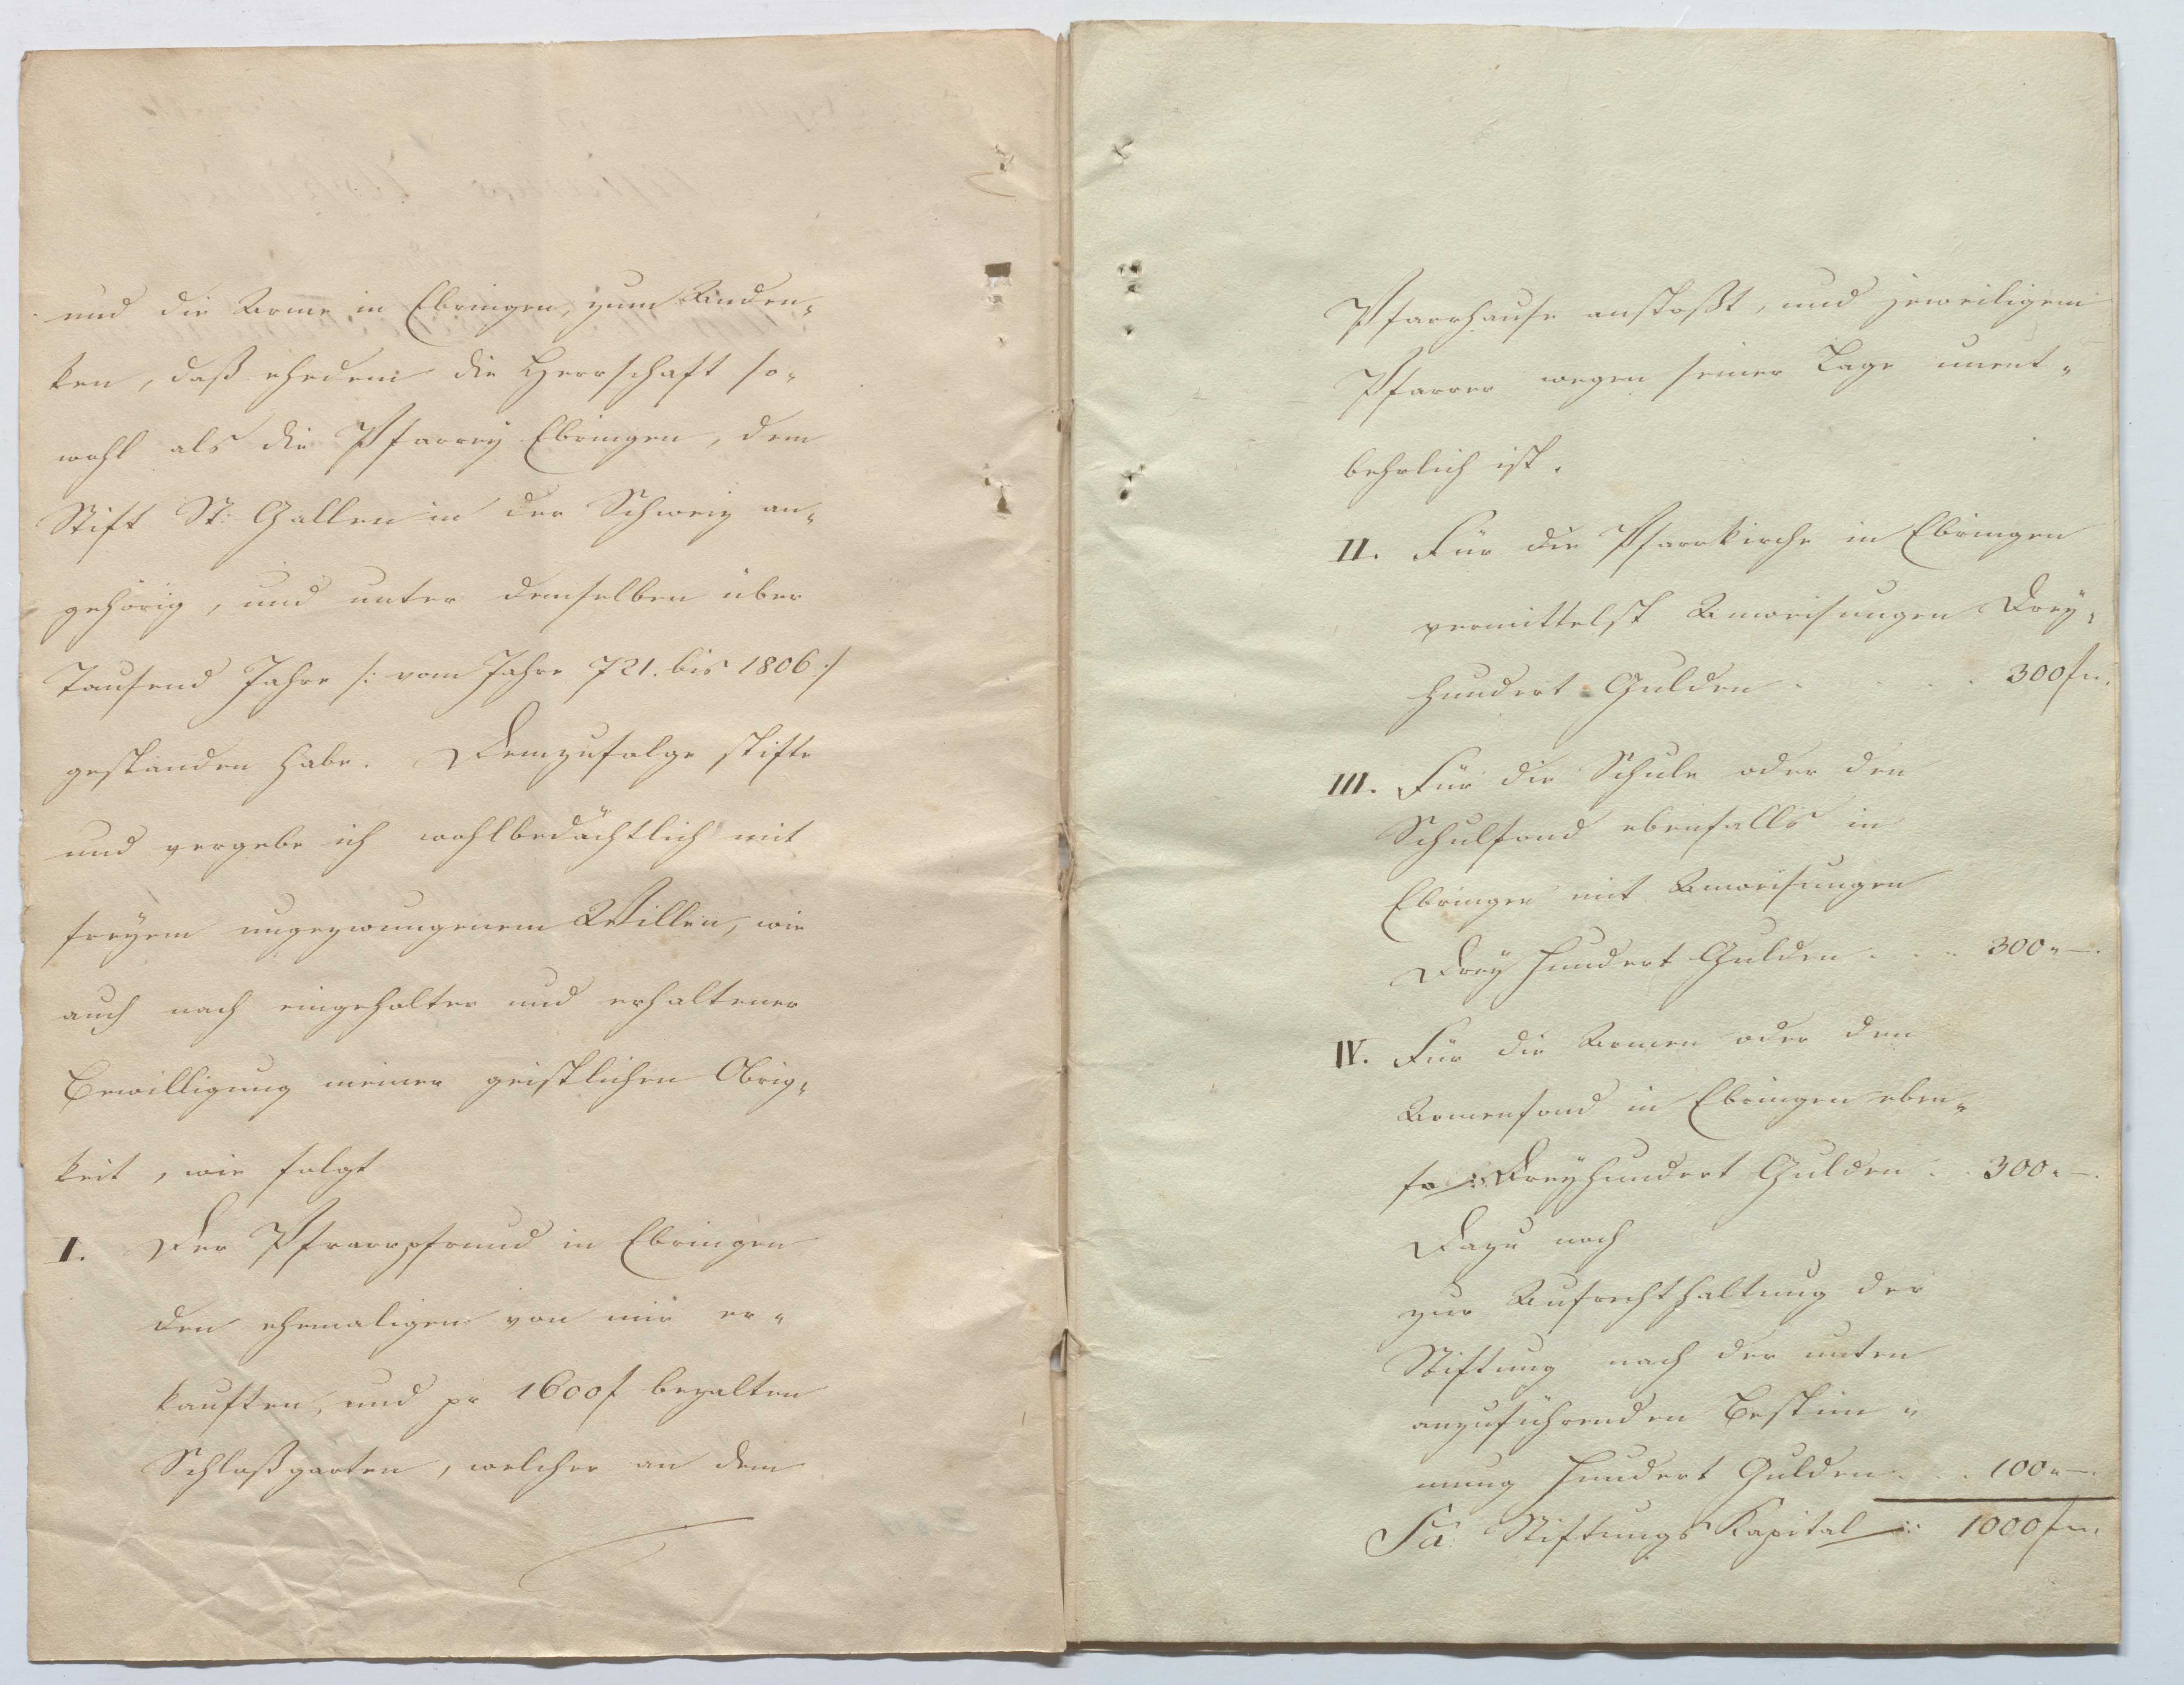 und die Arme in Ebringen, zum Anden-
ken, daß ehedem die Herrschaft so-
wohl als die Pfarrey Ebringen, dem
Stift St: Gallen in der Schweiz an-
gehörig, und unter demselben über
Tausend Jahre /: vom Jahre 721. bis 1806 :/
gestanden habe. Demzufolge stifte
und vergebe ich wohlbedächtlich mit
freyem ungezwungenem Willen, wie
auch nach eingeholter und erhaltener
Bewilligung meiner geistlichen Obrig-
keit, wie folgt
I. Der Pfrarrpfrund in Ebringen
den ehemaligen von mir er-
kauften, und pr 1600f bezalten
Schloßgarten, welcher an dem
Pfarrhause anstoßt, und jeweiligem
Pfarrer wegen seiner Lage unent-
behrlich ist.
II. Für die Pfarrkirche in Ebringen
vermittelst Anweisungen Drey-
hundert Gulden . . . . 300f„.
III. Für die Schule oder den
Schulfond ebenfalls in
Ebringen mit Anweisungen
Drey hundert Gulden . . . 300„—.
IV. Für die Armen oder den
Armenfond in Ebringen eben-
so: Dreyhundert Gulden . . 300„—.
Dazu noch
zur Aufrechthaltung der
Stiftung nach der unten
anzuführenden Bestim-
mung hundert Gulden . . . 100„—.
Sa. Stiftungs Kapital :: 1000f„.